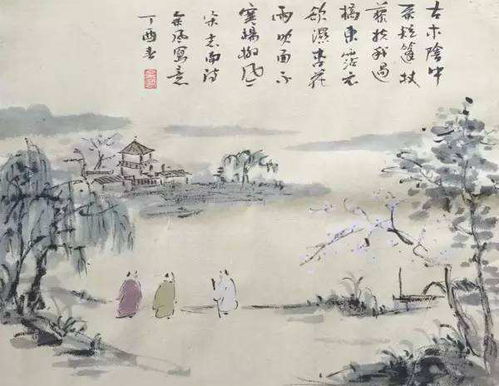 古木陰中
系短篷杖
藜扶我過
橋東霑衣
欲濕杏花
雨吹面不
寒楊柳風
宋志南詩
金風寫意
丁酉春